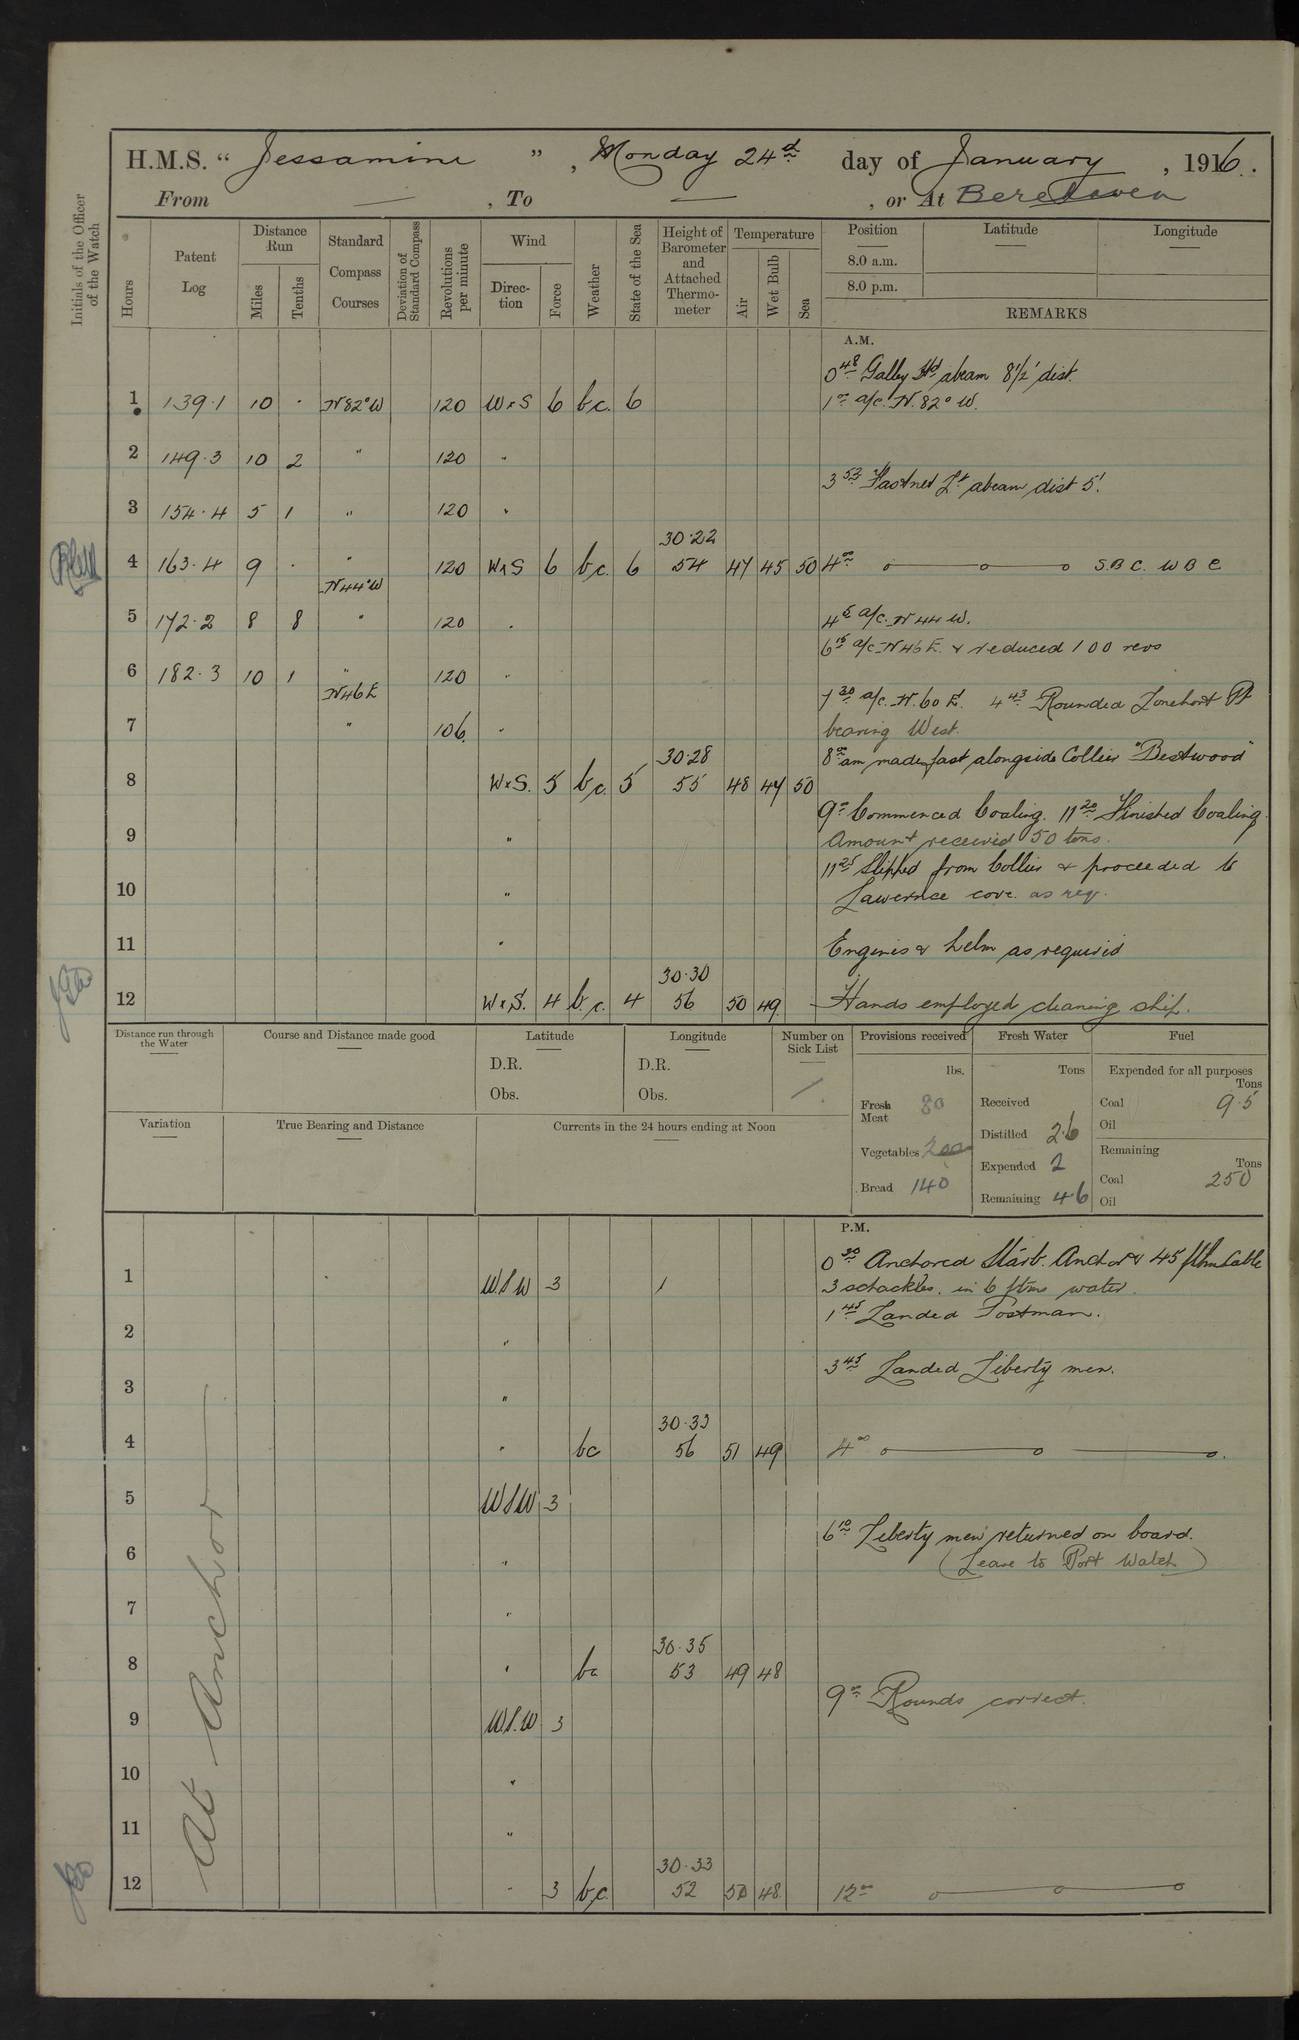 H.M.S. " Jessamine " , Monday 24th day of January , 1916.
From — , To — , or At Berehaven
Initials of the Officer of the Watch
Hours
Patent Log
Distance Run
Miles
Tenths
Standard Compass Courses
Deviation of Standard Compass
Revolutions per minute
Wind
Direction
Force
Weather
State of the Sea
Height of Barometer and Attached Thermometer
Temperature
Air
Wet Bulb
Sea
Position
Latitude
Longitude
8.0 a.m.
8.0 p.m.
REMARKS
A.M.
0 48 Galley Hd abeam 8 1/2' dist.
1 139.1 10 . N82°W 120 WxS 6 b.c. 6 1 00 a/c. N. 82° W.
2 149.3 10 2 " 120 "
3 53 Fastnet Lt abeam dist 5'.
3 154.4 5 1 " 120 "
30.22
4 163.4 9 . " 120 WxS 6 b.c. 6 54 47 45 50 4 00 S.B C. W B C
N44°W
5 172.2 8 8 " 120 " 4 5 a/c. N 44 W.
6 15 a/c N46E. & reduced 100 revs
6 182.3 10 1 " 120 "
N46E
7 30 a/c. N. 60 E. 4 43 Rounded Lonehort Pt
7 " 106 " bearing West.
30.28 8 00 am made fast alongside Collier "Bestwood"
8 WxS. 5 b.c. 5 55 48 47 50
9 00 Commenced Coaling. 11 20 Finished Coaling.
9 " Amount received 50 tons.
11 25 Slipped from Collier & proceeded to
10 " Lawernce cove. as req.
11 " Engines & helm as required
30.30
12 WxS. 4 b.c. 4 56 50 49 Hands employed cleaning ship.
Distance run through the Water
Course and Distance made good
Latitude
D.R.
Obs.
Longitude
D.R.
Obs.
Number on Sick List
Provisions received
lbs.
Fresh Meat 80
Vegetables 200
Bread 140
Fresh Water
Tons
Received
Distilled 2.6
Expended 2
Remaining 46
Fuel
Expended for all purposes
Tons
Coal 9.5
Oil
Remaining
Tons
Coal 250
Oil
Variation
True Bearing and Distance
Currents in the 24 hours ending at Noon
P.M.
0 30 Anchored Starb. Anchor & 45 fthm Cable
1 WSW 3 3 schackles. in 6 ftms water.
1 45 Landed Postman.
2 "
3 45 Landed Liberty men.
3 "
30.33
4 " bc 56 51 49 4 00
5 WSW 3
6 10 Liberty men returned on board.
6 " (Leave to Port Watch)
7 "
30.35
8 " bc 53 49 48
9 00 Rounds correct.
9 W.S.W 3
10 "
11 "
30.33
12 " 3 b.c. 52 50 48 12 00
At Anchor